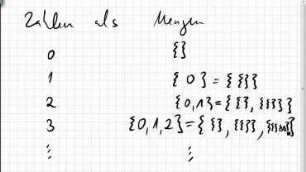 Zahlen als Mengen
0 {}
1 {0} = {{}}
2 {0,1} = {{}, {{}}}
3 {0,1,2} = { {}, {{}},
⋮ ⋮